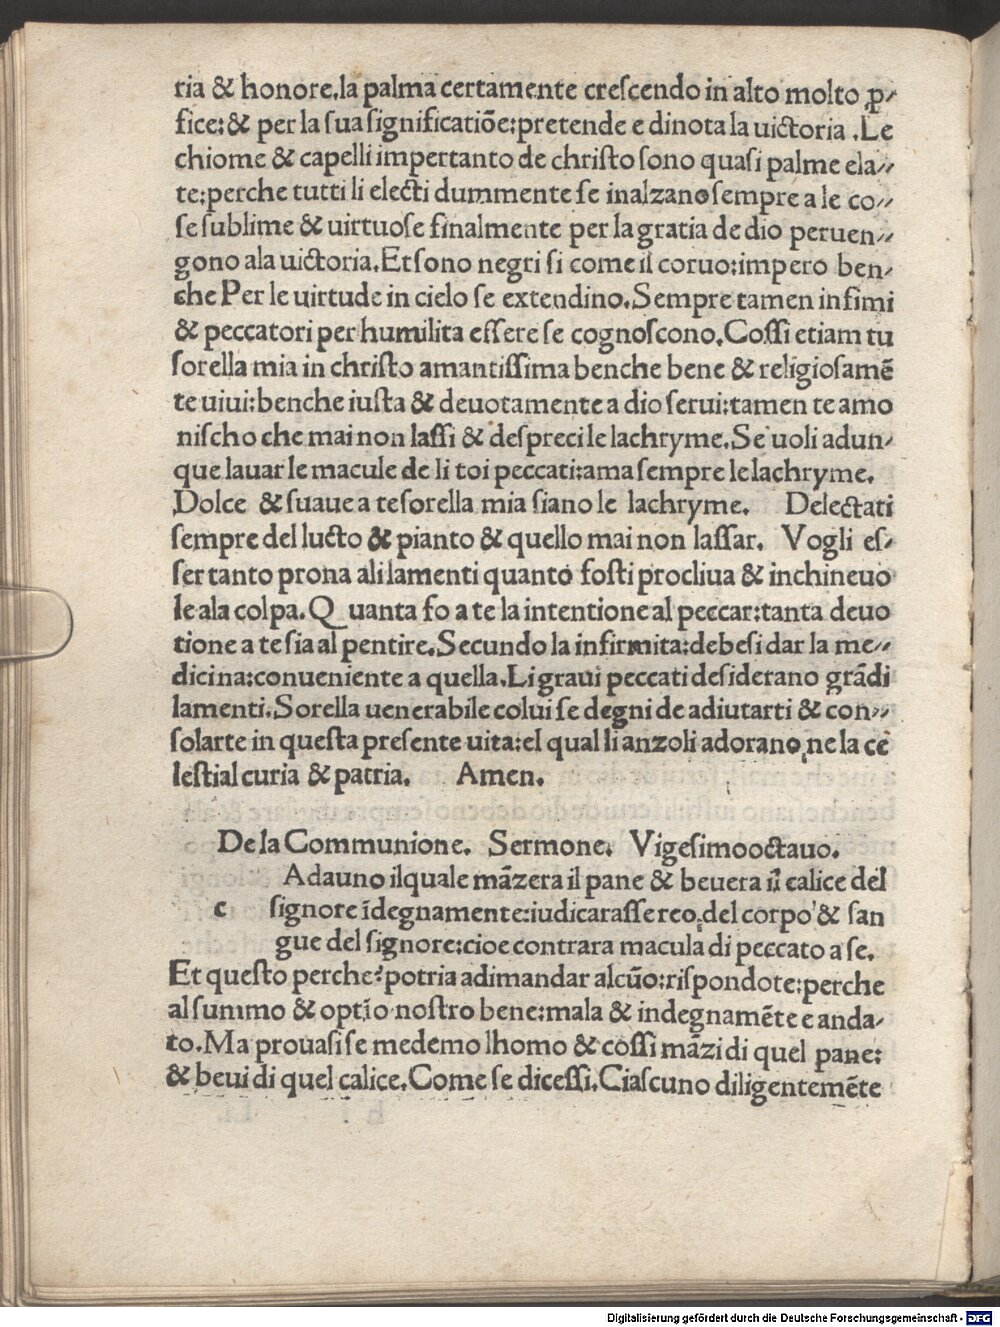 ria & honore.la palma certamente crescendo in alto molto ꝓ-
fice:& per la sua significatiõe:pretende e dinota la uictoria .Le
chiome & capelli impertanto de christo sono quasi palme ela-
te:perche tutti li electi dummente se inalzano sempre a le co-
se sublime & uirtuose finalmente per la gratia de dio peruen-
gono ala uictoria.Et sono negri si come il coruo:impero ben-
che Per le uirtude in cielo se extendino.Sempre tamen infimi
& peccatori per humilita essere se cognoscono.Cossi etiam tu
sorella mia in christo amantissima benche bene & religiosamẽ
te uiui:benche iusta & deuotamente a dio serui:tamen te amo
nischo che mai non lassi & despreci le lachryme.Se uoli adun-
que lauar le macule de li toi peccati:ama sempre le lachryme.
Dolce & suaue a te sorella mia siano le lachryme. Delectati
sempre del lucto & pianto & quello mai non lassar. Vogli es-
ser tanto prona ali lamenti quanto fosti procliua & inchineuo
le ala colpa.Quanta fo a te la intentione al peccar:tanta deuo
tione a te sia al pentire.Secundo la infirmita:debesi dar la me-
dicina:conueniente a quella.Li graui peccati desiderano grãdi
lamenti.Sorella uenerabile colui se degni de adiutarti & con-
solarte in questa presente uita:el qual li anzoli adorano ne la ce
lestial curia & patria. Amen.
De la Communione. Sermone. Vigesimooctauo.
Adauno ilquale mãzera il pane & beuera il calice del
c signore ĩdegnamente:iudicarasse reo del corpo & san
gue del signore:cioe contrara macula di peccato a se.
Et questo perche?potria adimandar alcũo:rispondote:perche
al summo & optĩo nostro bene:mala & indegnamẽte e anda-
to.Ma prouasi se medemo lhomo & cossi mãzi di quel pane:
& beui di quel calice.Come se dicessi.Ciascuno diligentemẽte
Digitalisierung gefördert durch die Deutsche Forschungsgemeinschaft - DFG